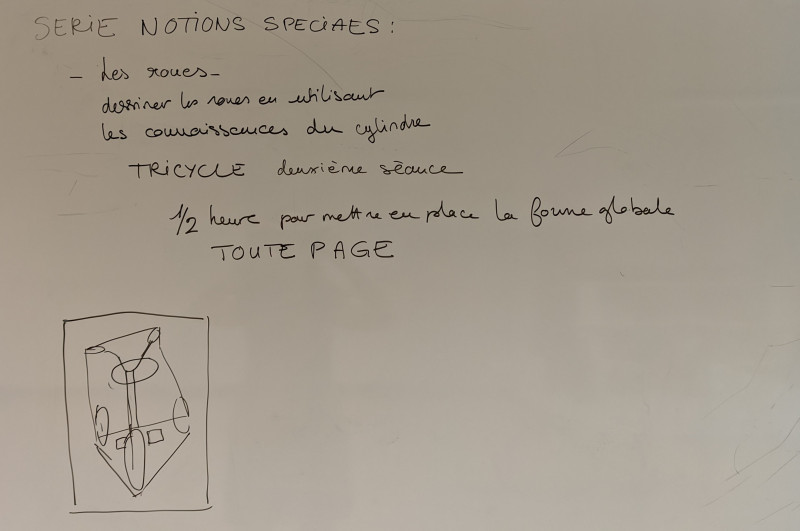 SERIE NOTIONS SPECIAES :
- Les roues -
dessiner les roues en utilisant
les connaissances du cylindre
TRICYCLE deuxième séance
1/2 heure pour mettre en place la forme globale
TOUTE PAGE